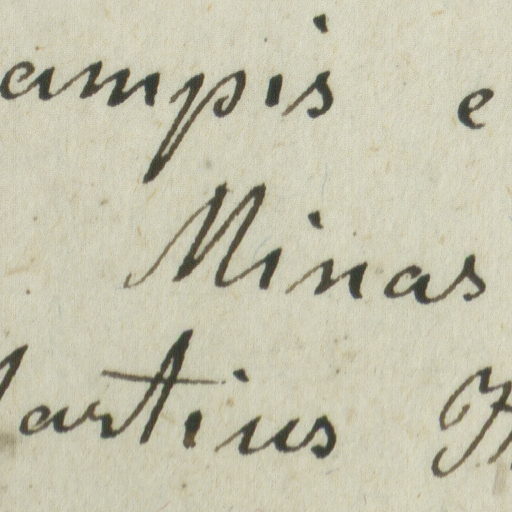 ampis e
Minas
Martius